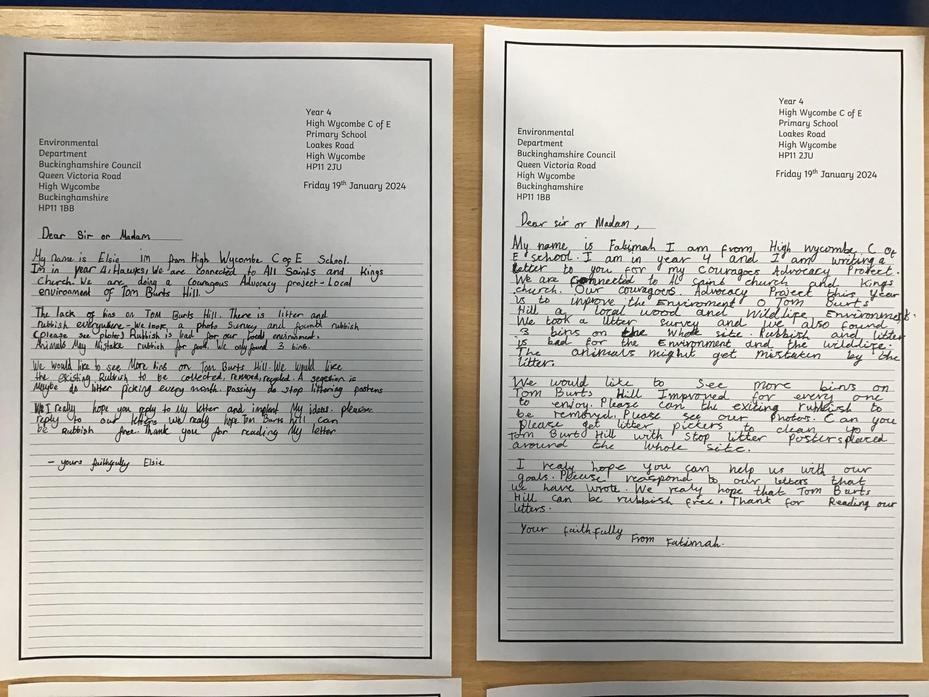 Year 4
High Wycombe C of E
Primary School
Loakes Road
High Wycombe
HP11 2JU
Environmental
Department
Buckinghamshire Council
Queen Victoria Road
High Wycombe
Buckinghamshire
HP11 1BB
Friday 19th January 2024
Dear Sir or Madam
My name is Elsie Im from High Wycombe C of E School.
Im in year 4, Hawks, We are connected to All Saints and Kings
Church. We are doing a couragous Advocacy project - Local
environment of Tom Burts Hill.
The lack of bins on Tom Burts Hill. There is litter and
rubbish everywhere - We took a photo survey and found rubbish
(please see photos) Rubbish is bad for our local
Animals May Mistake rubbish for food. We only found 3 bins.
We would like to see More bins on Tom Burts Hill. We Would like
the existing Rubbish to be collected, removed, recycled. A
Maybe do litter picking every month. possibly do stop littering
I really hope you reply to My letter and My ideas. please
reply to our letters We really hope Tom Burts hill can
be rubbish free. Thank you for reading My letter
- yours faithfully Elsie
Year 4
High Wycombe C of E
Primary School
Loakes Road
High Wycombe
HP11 2JU
Environmental
Department
Buckinghamshire Council
Queen Victoria Road
High Wycombe
Buckinghamshire
HP11 1BB
Friday 19th January 2024
Dear sir or Madam,
My name is Fatimah I am from, High Wycombe, C of
E school. I am in year 4 and I am writing a
letter to you for my Couragoes Advocacy Protect.
We are connected to All saint church and Kings
church. Our couragoes Advocacy Project this year
is to inprove the Enviroment O Tom Burts
Hill a local wood and Wildlife Environment.
We took a litter survey and we also found
3 bins on the Whole site. Rubbish and litter
is bad for the Environment and the wildlife.
The animals might get mistaken by the
litter.
We would like to see more bins on
Tom Burts Hill Improved for every one
to enjoy. Please can the exiting rubbish to
be removed. Please see our Photos. Can you
Please get litter pickers to clean up
Tom Burts Hill with stop litter posters placed
around the whole site.
I realy hope you can help us with our
goals. Please reaspond to our letters that
we have wrote. We realy hope that Tom Burts
Hill can be rubbish free. Thank for Reading our
letters.
Your faithfully
From Fatimah.